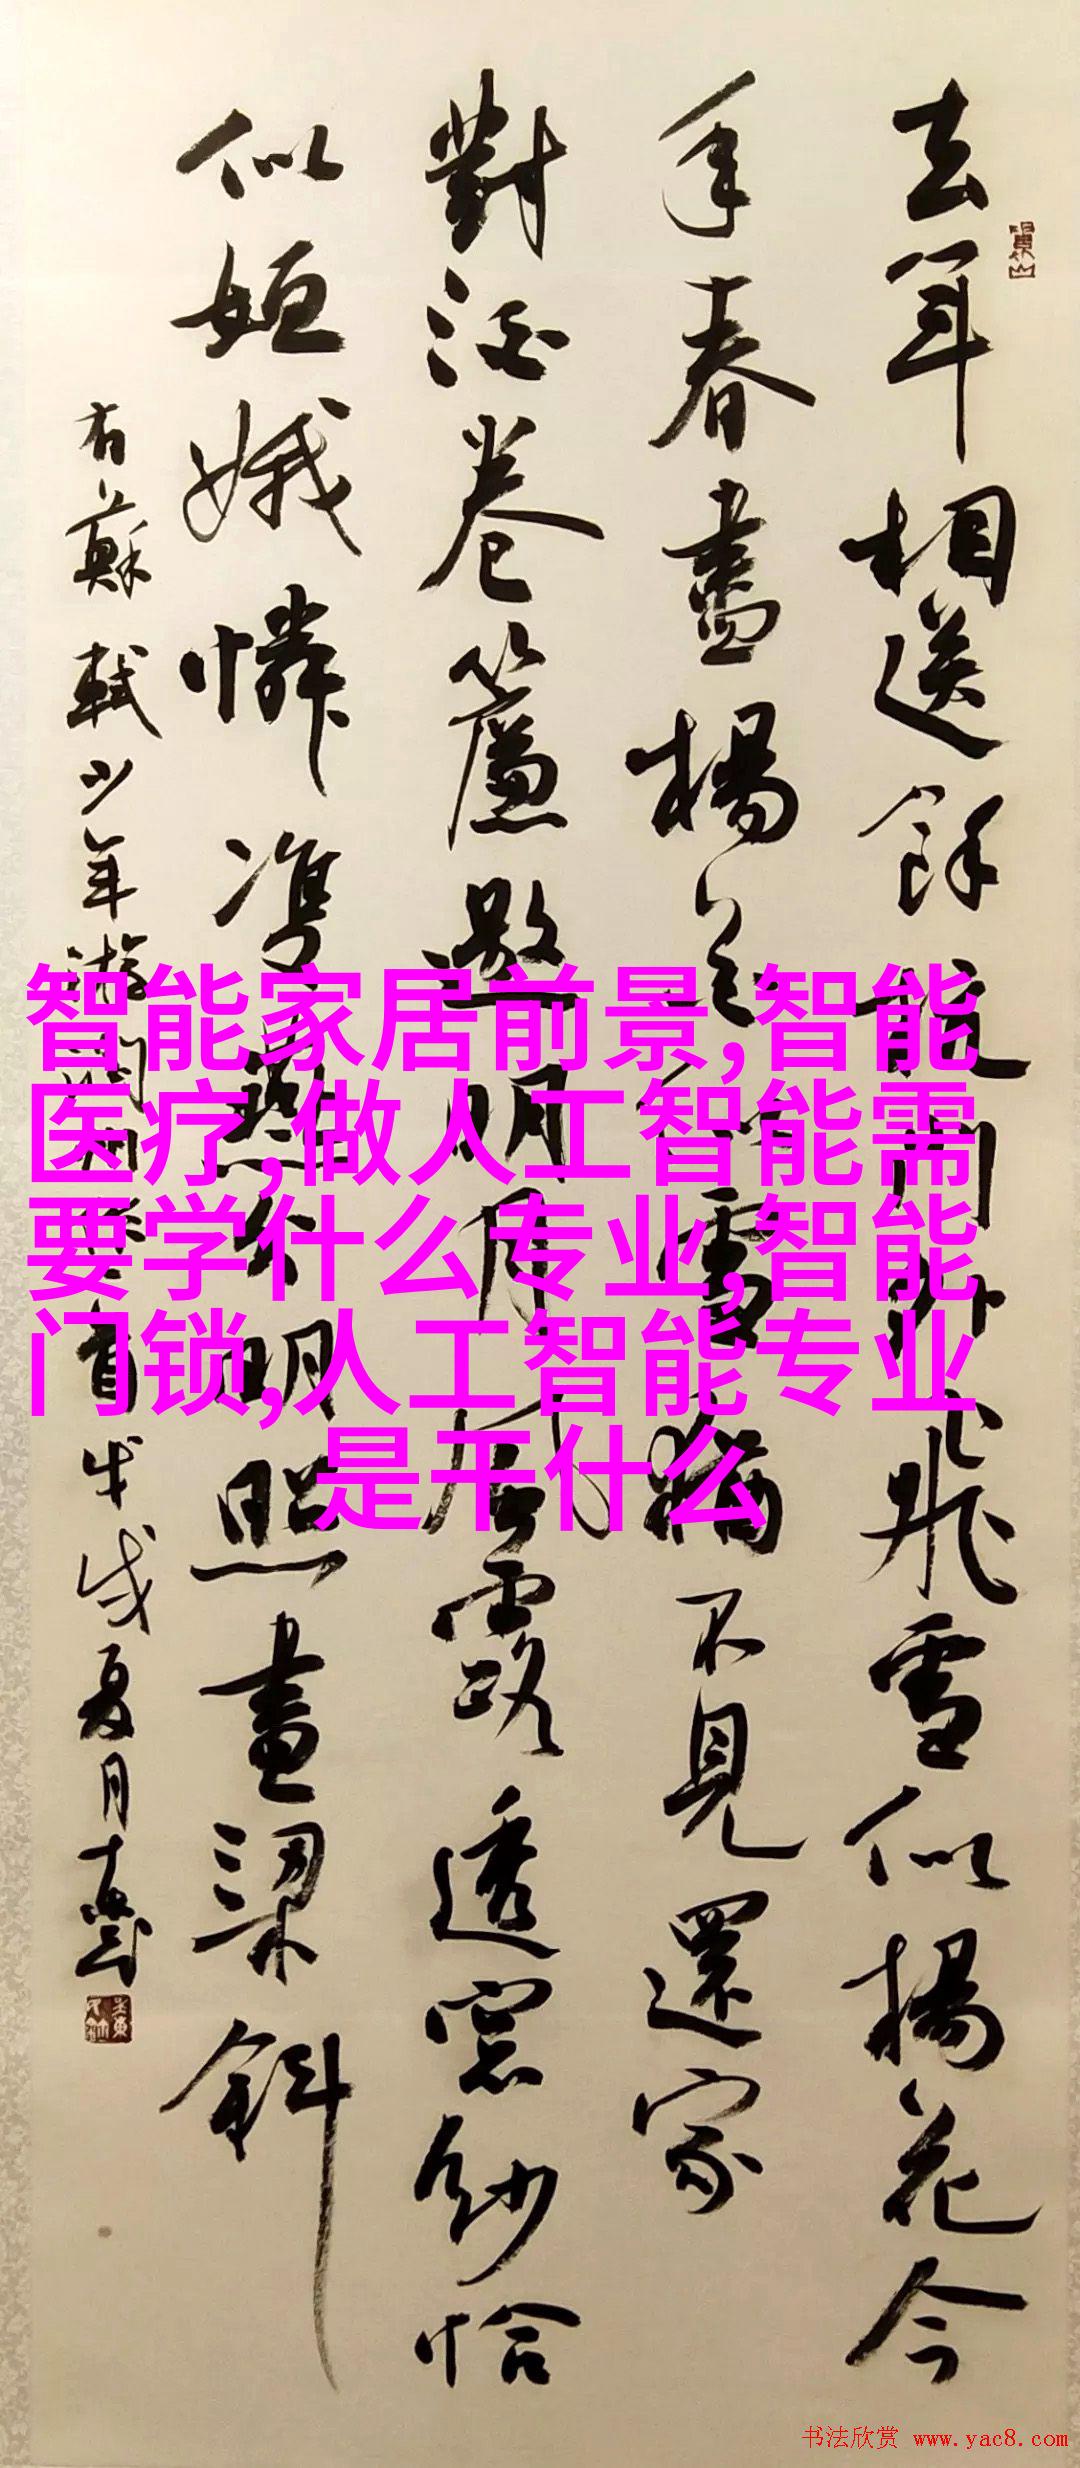 去年相送餘杭門外飛雪似楊花今
年春盡楊花似雪猶不見還家
對酒卷簾邀明月風露透窗紗恰
似姮娥憐雙燕分明照畫梁斜
右蘇軾少年游潤州作 戊戌夏月
智能家居前景,智能
医疗,做人工智能需
要学什么专业,智能
门锁,人工智能专业
是干什么
书法欣赏 www.yac8.com